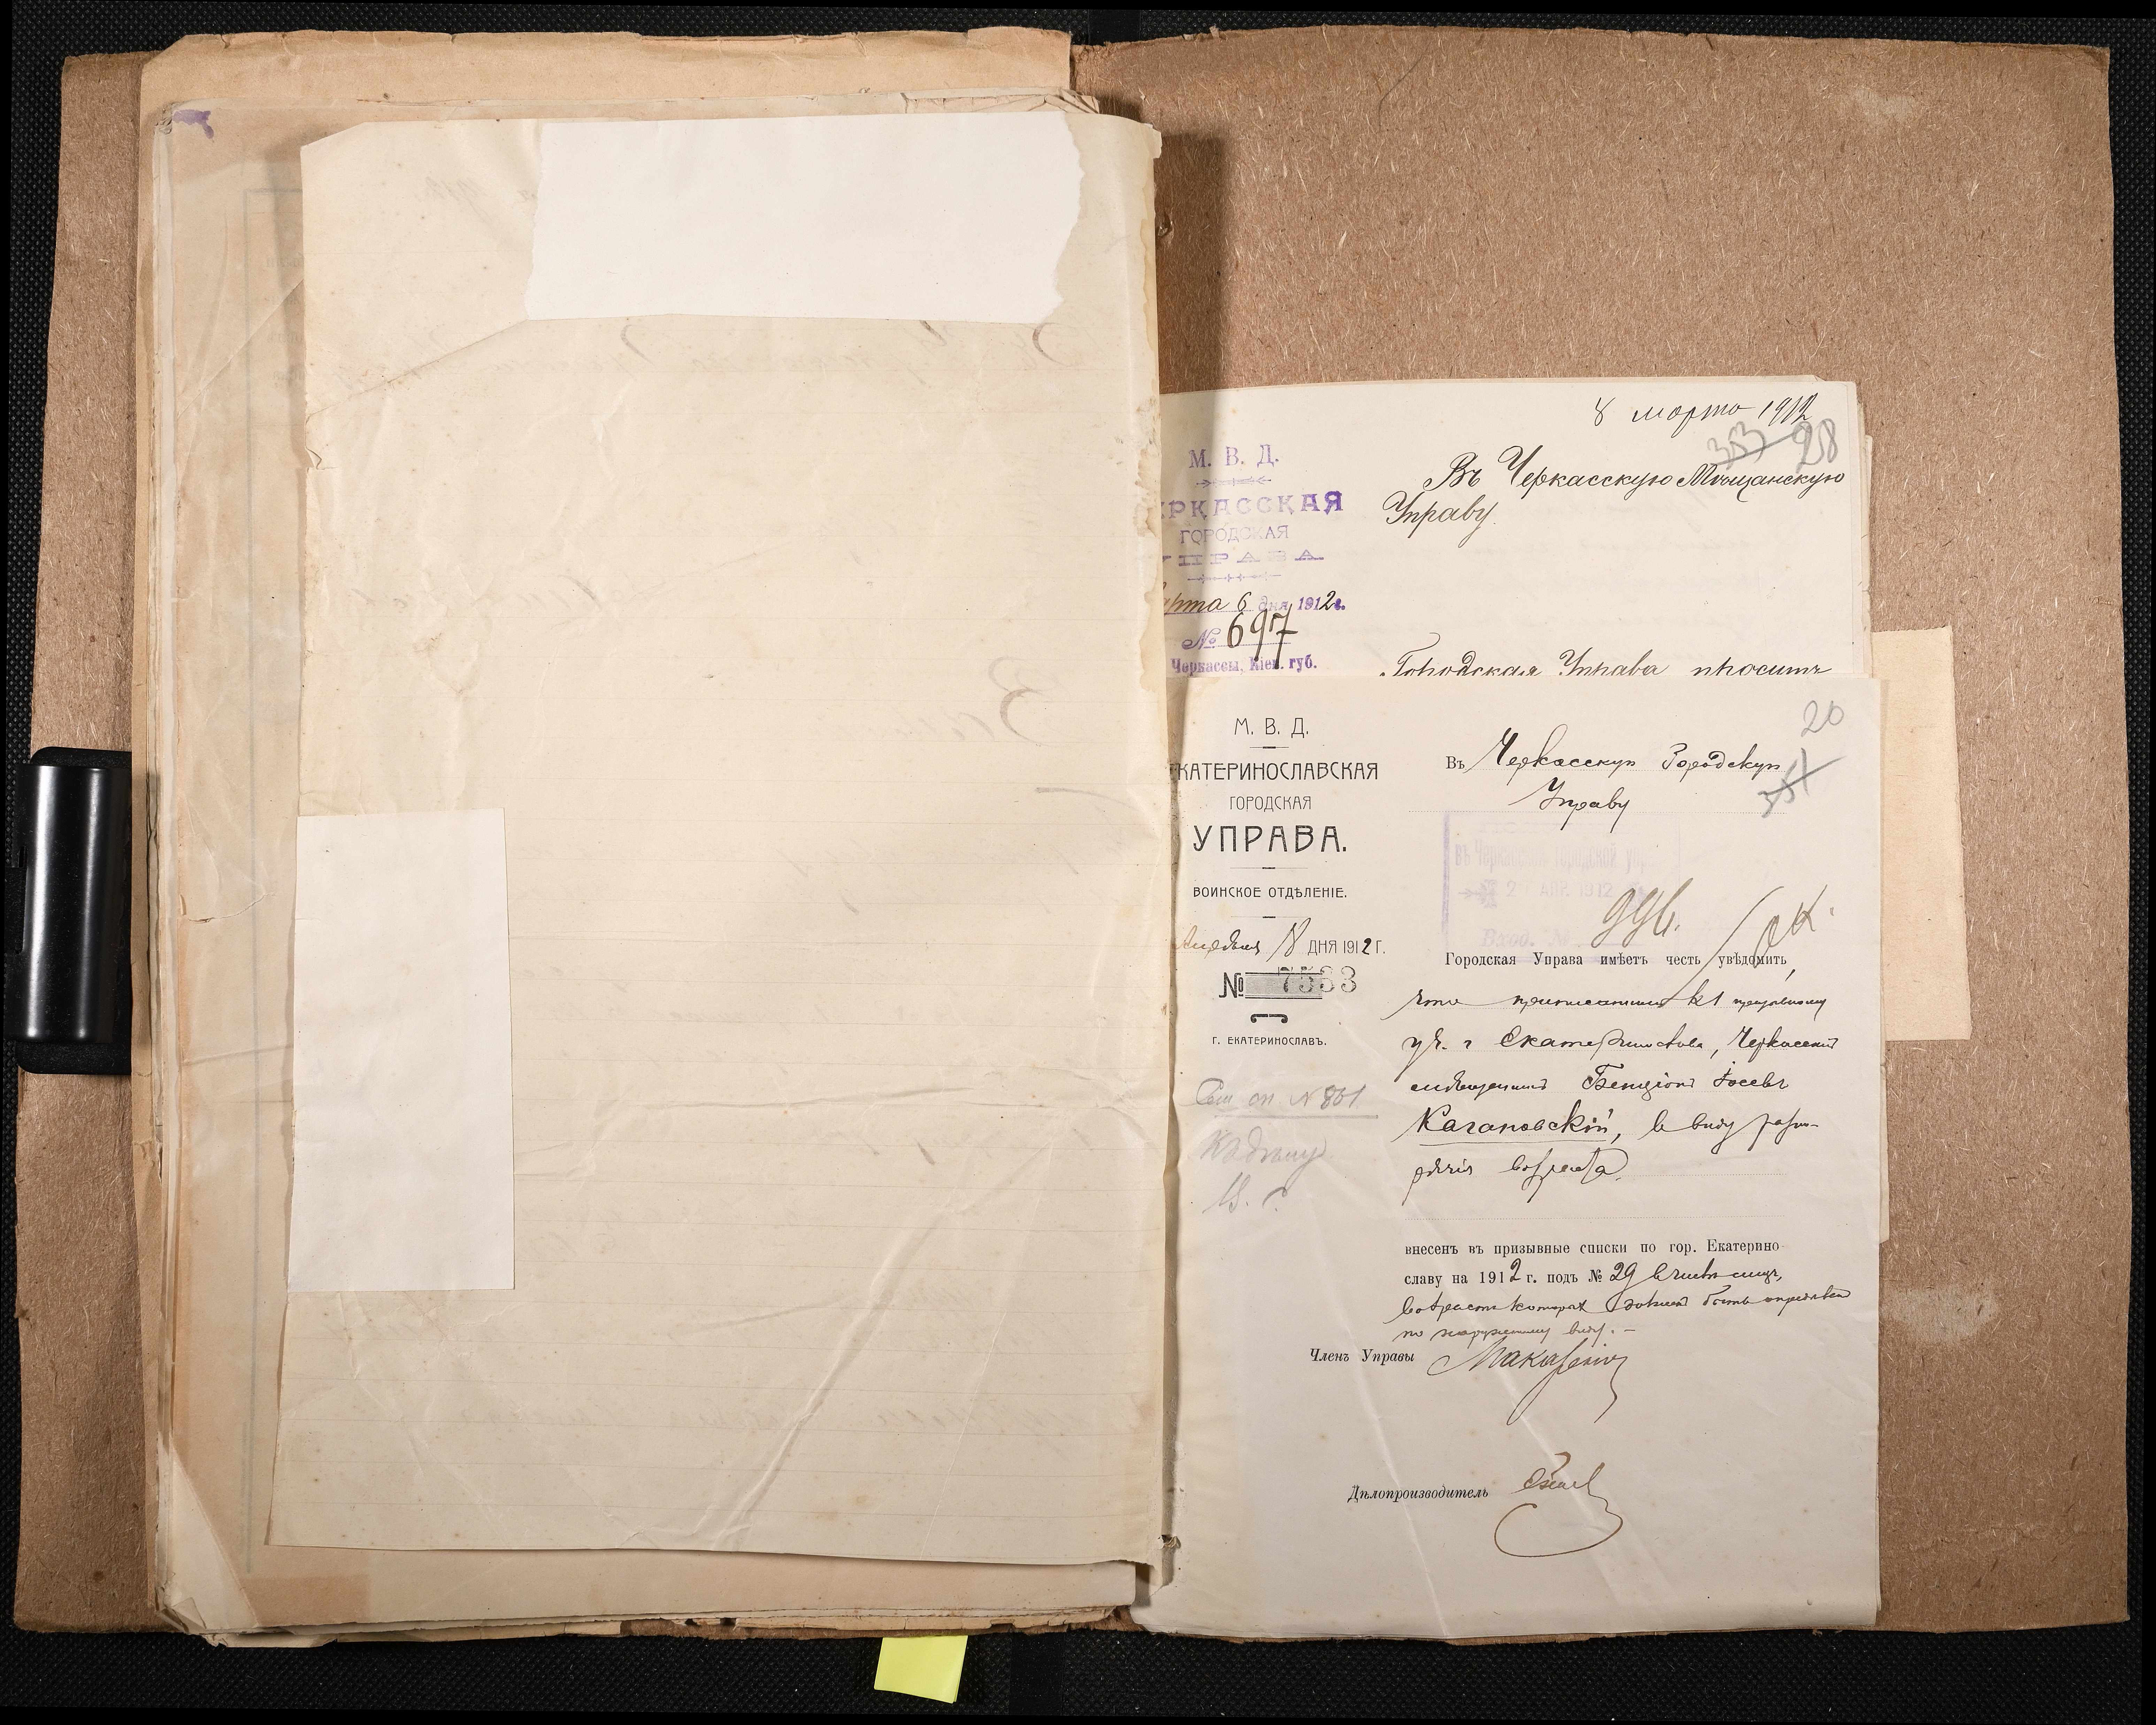 8 марта 1912
353 28
М. В. Д.
РКАССКАЯ
ГОРОДСКАЯ
УПРАВА
рта 6 дня 1912 г.
№ 697
Черкассы, Кіев. губ.
Въ Черкасскую Мѣщанскую
Управу.
Городская Управа проситъ
20
351
М. В. Д.
КАТЕРИНОСЛАВСКАЯ
ГОРОДСКАЯ
УПРАВА.
ВОИНСКОЕ ОТДѢЛЕНІЕ.
Апрѣля 18 ДНЯ 1912 Г.
№ 7533
Г. ЕКАТЕРИНОСЛАВЪ.
№ 801
Къ дѣлу
Въ Черкасскую Городскую
Управу
въ Черкасской городской упр
2 АПР. 1912
Вход. №
Городская Управа имѣетъ честь увѣдомить,
что приписанный къ 1 призывному
уч. г Екатеринослава, Черкасскій
мѣщанинъ Бенціонъ Іосевъ
Кагановскій, въ виду разно-
рѣчія возраста,
внесенъ въ призывные списки по гор. Екатерино
славу на 1912 г. подъ № 29 въ числѣ лицъ,
возрастъ которыхъ долженъ быть опредѣленъ
по наружному виду. —
Членъ Управы
Дѣлопроизводитель